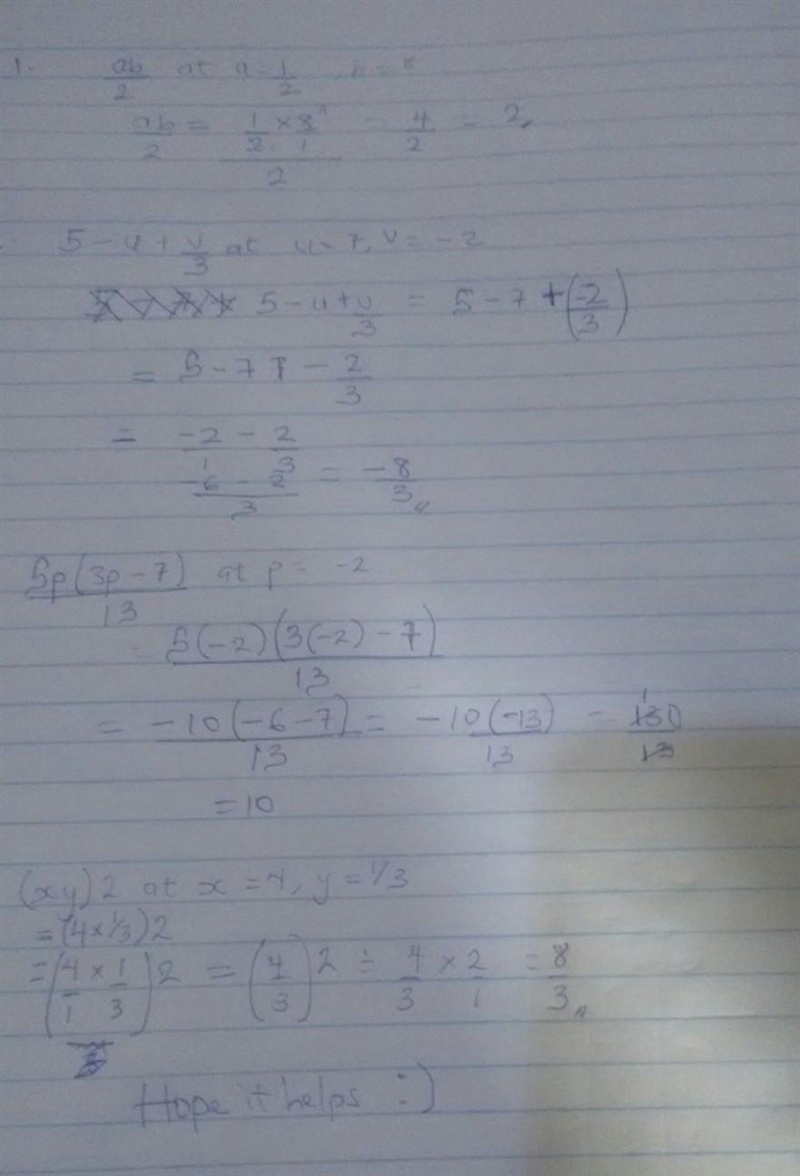 1. ab/2 at a = 1/2, b = 8
ab/2 = (1/2 × 8/1)/2 = 4/2 = 2
5 - u + v/3 at u = 7, v = -2
5 - u + v/3 = 5 - 7 + (-2/3)
= 5 - 7 - 2/3
= -2/1 - 2/3
(-6 - 2)/3 = -8/3
5p(3p - 7)/13 at p = -2
= 5(-2)(3(-2) - 7)/13
= -10(-6 - 7)/13 = -10(-13)/13 = 130/13
= 10
(xy)2 at x = 4, y = 1/3
= (4 × 1/3)2
= (4/1 × 1/3)2 = (4/3)2 = 4/3 × 2/1 = 8/3
Hope it helps :)